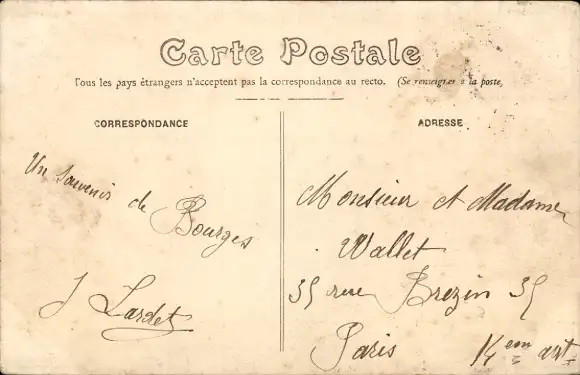 Carte Postale
Tous les pays étrangers n'acceptent pas la correspondance au recto. (Se renseigner à la poste,
CORRESPONDANCE
Un souvenir de
Bourges
J Lardet
ADRESSE
Monsieur et Madame
Wallet
35 rue Brezin 35
Paris 14em arrt